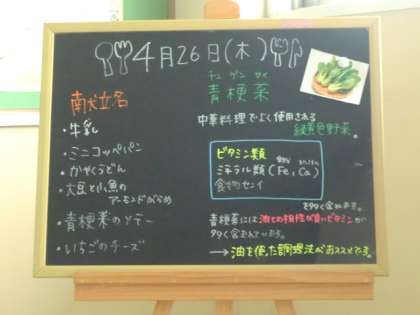 4月26日(木)
献立名
・牛乳
・ミニコッペパン
・かやくうどん
・大豆と小魚の
アーモンドがらめ
・青梗菜のソテー
・いちごのチーズ
チン ゲン サイ
青梗菜
中華料理でよく使用される
緑黄色野菜。
ビタミン類
ミネラル類(Fe,Ca)
食物センイ
を多く含みます。
青梗菜には油との相性が良いビタミンが
多く含まれています。
→油を使った調理法がおススメです。